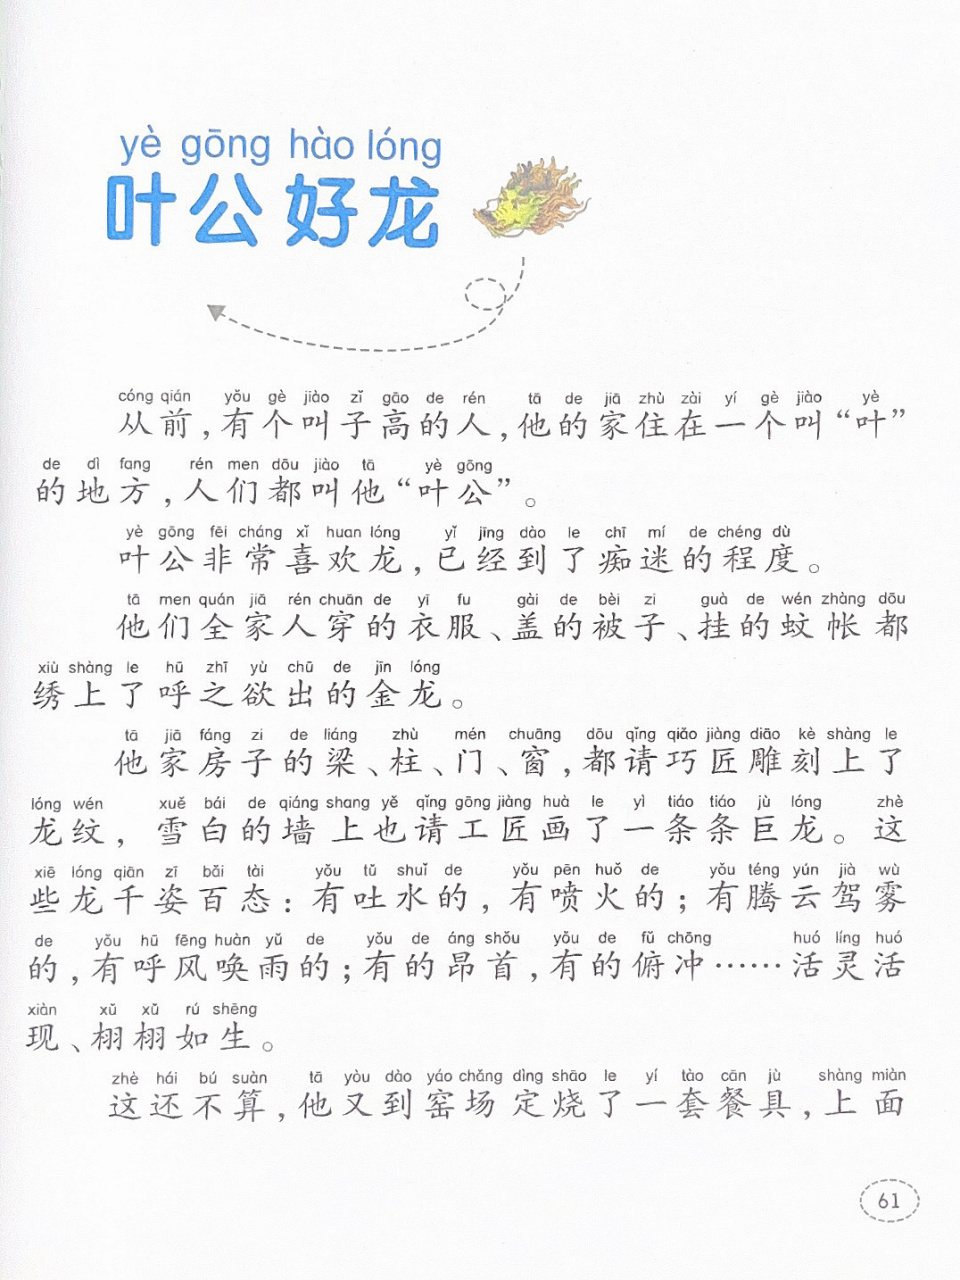 yè gōng hào lóng
叶公好龙
cóng qián yǒu gè jiào zǐ gāo de rén tā de jiā zhù zài yí gè jiào yè
从前,有个叫子高的人,他的家住在一个叫“叶”
de dì fang rén men dōu jiào tā yè gōng
的地方,人们都叫他“叶公”。
yè gōng fēi cháng xǐ huan lóng yǐ jīng dào le chī mí de chéng dù
叶公非常喜欢龙,已经到了痴迷的程度。
tā men quán jiā rén chuān de yī fu gài de bèi zi guà de wén zhàng dōu
他们全家人穿的衣服、盖的被子、挂的蚊帐都
xiù shàng le hū zhī yù chū de jīn lóng
绣上了呼之欲出的金龙。
tā jiā fáng zi de liáng zhù mén chuāng dōu qǐng qiǎo jiàng diāo kè shàng le
他家房子的梁、柱、门、窗,都请巧匠雕刻上了
lóng wén xuě bái de qiáng shang yě qǐng gōng jiàng huà le yì tiáo tiáo jù lóng zhè
龙纹,雪白的墙上也请工匠画了一条条巨龙。这
xiē lóng qiān zī bǎi tài yǒu tǔ shuǐ de yǒu pēn huǒ de yǒu téng yún jià wù
些龙千姿百态:有吐水的,有喷火的;有腾云驾雾
de yǒu hū fēng huàn yǔ de yǒu de áng shǒu yǒu de fǔ chōng huó líng huó
的,有呼风唤雨的;有的昂首,有的俯冲……活灵活
xiàn xǔ xǔ rú shēng
现、栩栩如生。
zhè hái bú suàn tā yòu dào yáo chǎng dìng shāo le yí tào cān jù shàng miàn
这还不算,他又到窑场定烧了一套餐具,上面
61